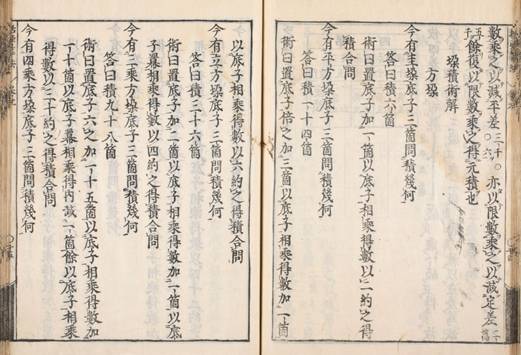 數乘之以減平差 亦以限數乘之以減定差
餘復以限數乘之得元積也
垛積術解
方垛
今有圭垛底子三箇問積幾何
答曰積六箇
術曰置底子加一箇以底子相乘得數以二約之得
積合問
今有平方垛底子三箇問積幾何
答曰積一十四箇
術曰置底子倍之加三箇以底子相乘得數加一箇
以底子相乘得數以六約之得積合問
今有立方垛底子三箇問積幾何
答曰積三十六箇
術曰置底子加二箇以底子相乘得數加一箇以底
子冪相乘得數以四約之得積合問
今有三乘方垛底子三箇問積幾何
答曰積九十八箇
術曰置底子六之加一十五箇以底子相乘得數加
一十箇以底子冪相乘得內減一箇餘以底子相乘
得數以三十約之得積合問
今有四乘方垛底子三箇問積幾何